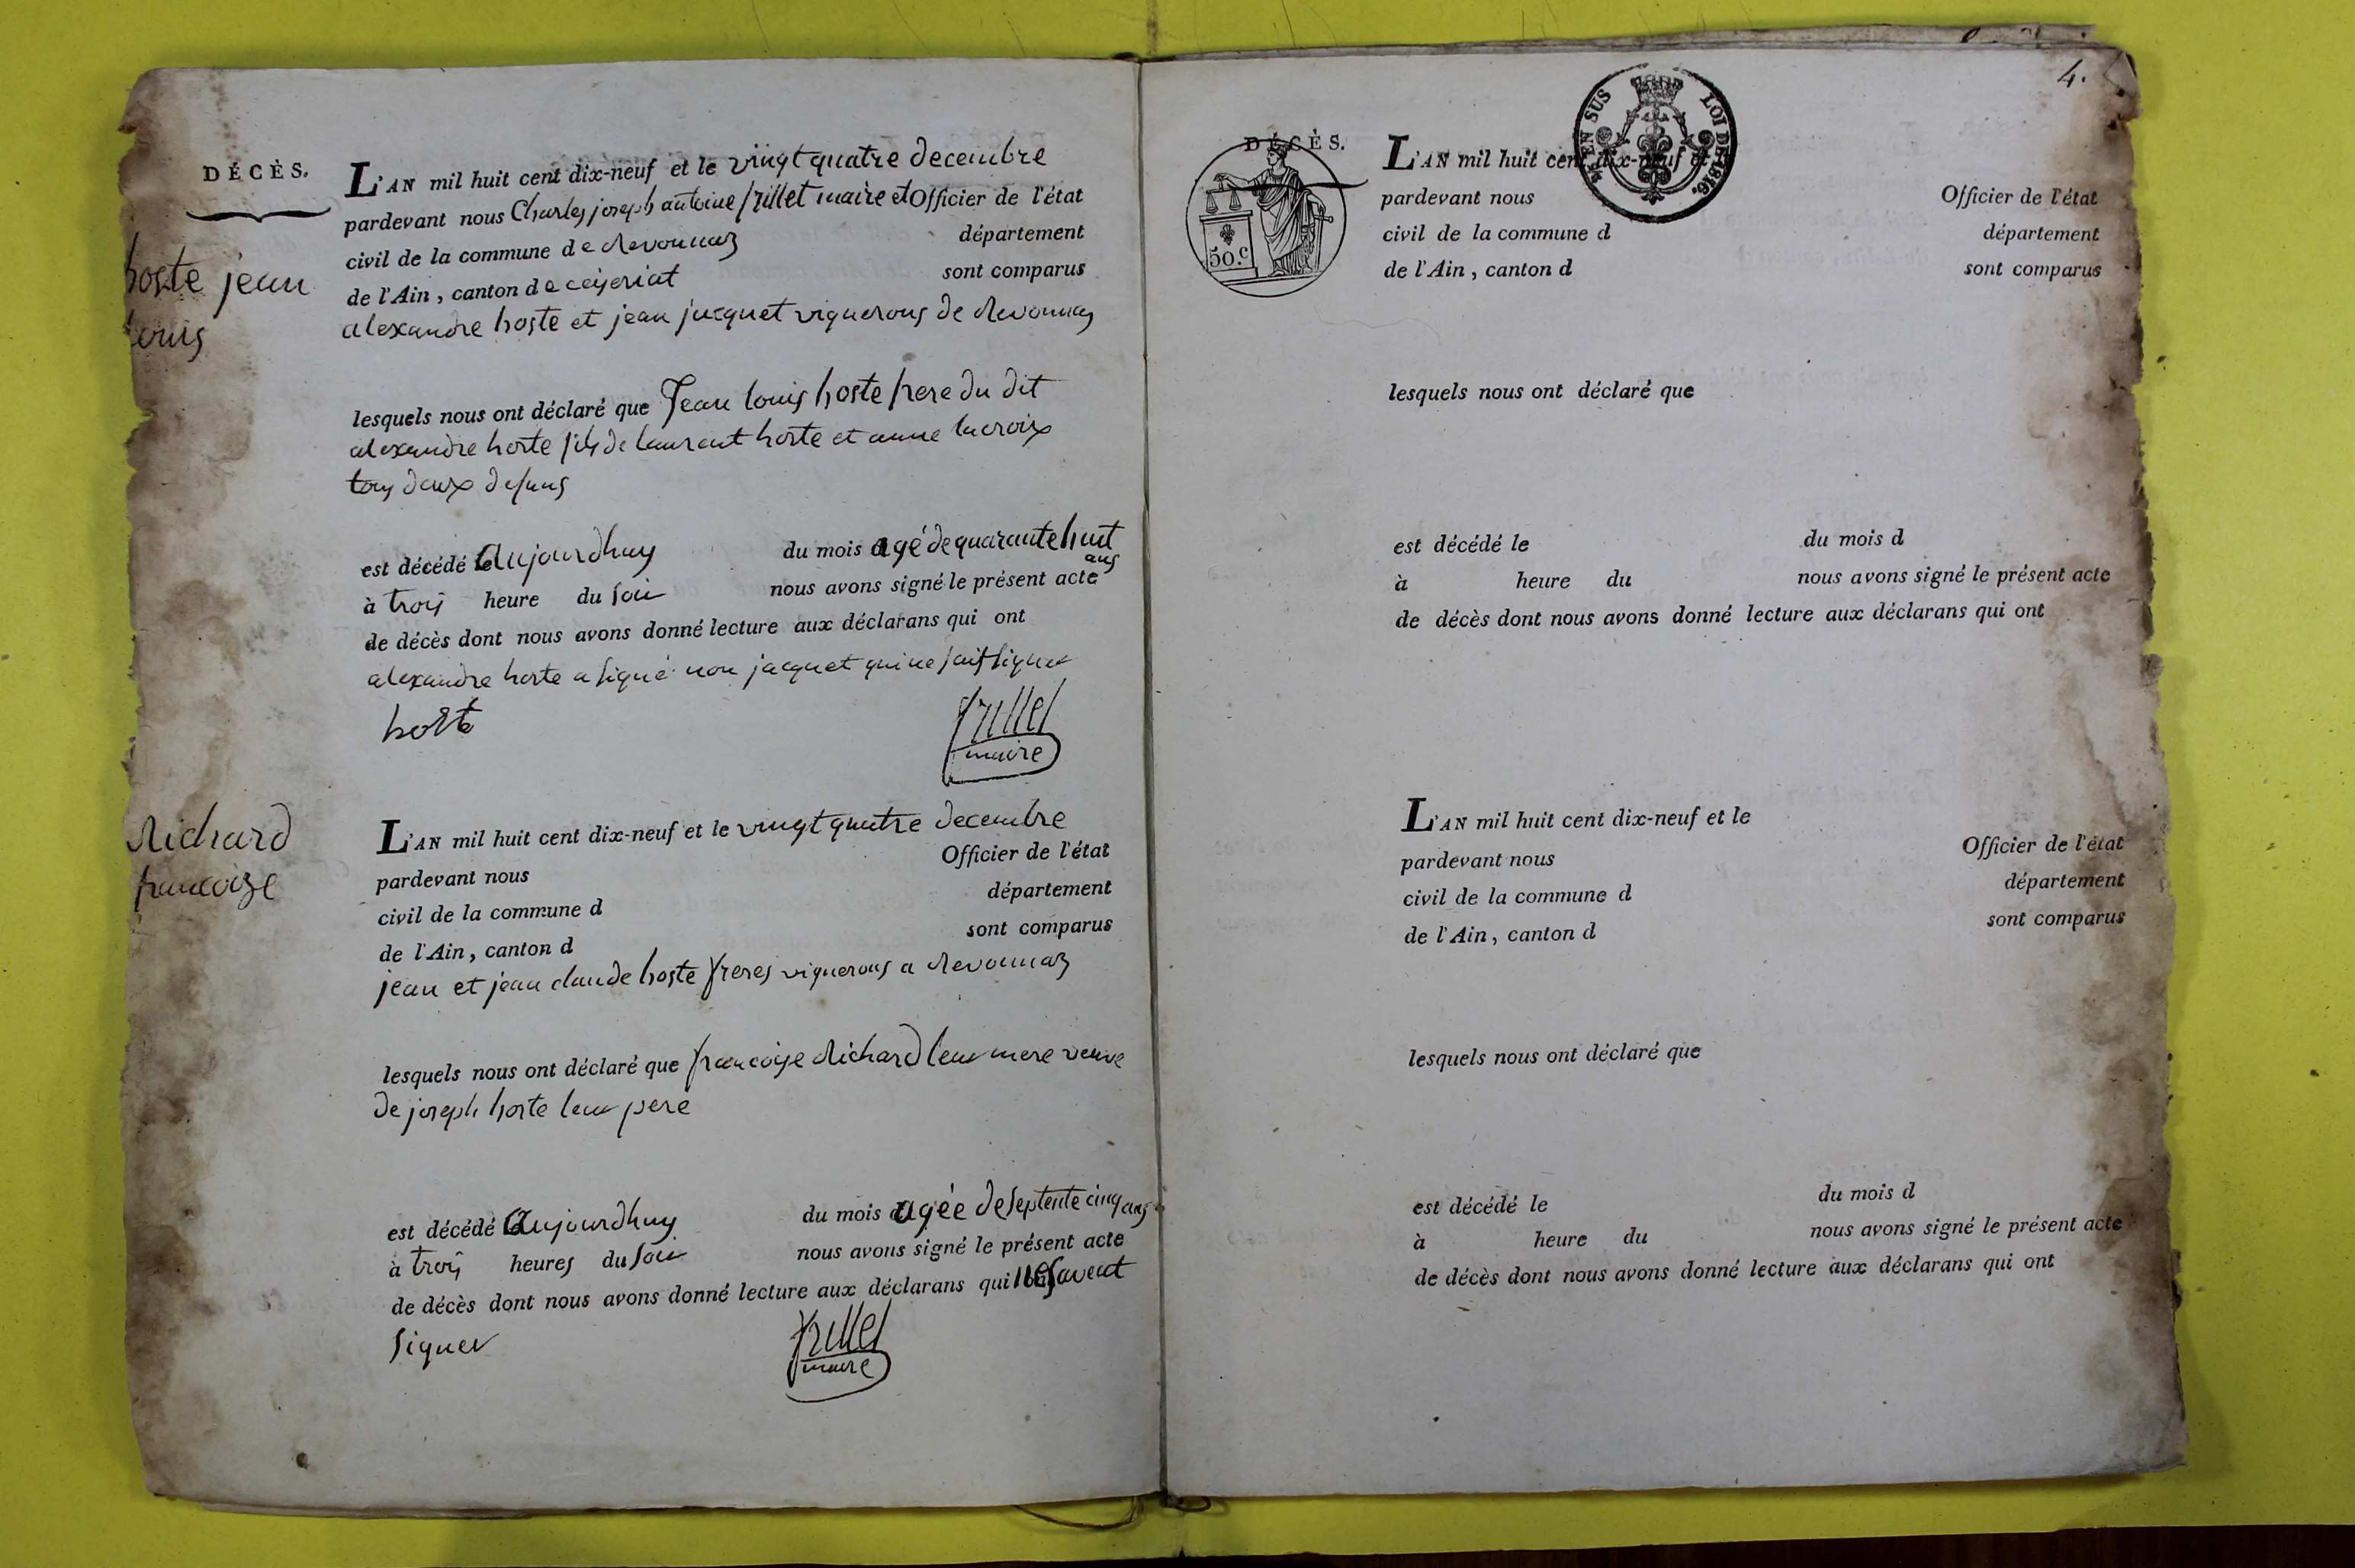 DÉCÈS.
hoste jean
louis
L'AN mil huit cent dix-neuf et le vingt quatre decembre
pardevant nous Charles joseph antoine frillet maire et Officier de l'état
civil de la commune de Revonnaz département
de l'Ain, canton de ceyseriat sont comparus
alexandre hoste et jean jacquet vignerons de Revonnas
lesquels nous ont déclaré que Jean louis hoste pere du dit
alexandre hoste fils de laurent hoste et anne lacroix
tous deux defuns
est décédé aujourdhuy du mois agé de quarante huit
ans
à trois heure du soir nous avons signé le présent acte
de décès dont nous avons donné lecture aux déclarans qui ont
alexandre hoste a signé non jacquet qui ne sait signer
hoste frillet
maire
Richard
francoize
L'AN mil huit cent dix-neuf et le vingt quatre decembre
pardevant nous Officier de l'état
civil de la commune d département
de l'Ain, canton d sont comparus
jean et jean claude hoste freres vignerons a Revonnaz
lesquels nous ont déclaré que francoise Richard leur mere veuve
de joseph hoste leur pere
est décédé aujourdhuy du mois agée de septente cinq ans
à trois heures du soir nous avons signé le présent acte
de décès dont nous avons donné lecture aux déclarans qui ne savent
signer frillet
maire
4.
EN SUS LOI DE 1816.
DÉCÈS.
50.c
L'AN mil huit cent dix-neuf et
pardevant nous Officier de l'état
civil de la commune d département
de l'Ain, canton d sont comparus
lesquels nous ont déclaré que
est décédé le du mois d
à heure du nous avons signé le présent acte
de décès dont nous avons donné lecture aux déclarans qui ont
L'AN mil huit cent dix-neuf et le
pardevant nous Officier de l'état
civil de la commune d département
de l'Ain, canton d sont comparus
lesquels nous ont déclaré que
est décédé le du mois d
à heure du nous avons signé le présent acte
de décès dont nous avons donné lecture aux déclarans qui ont